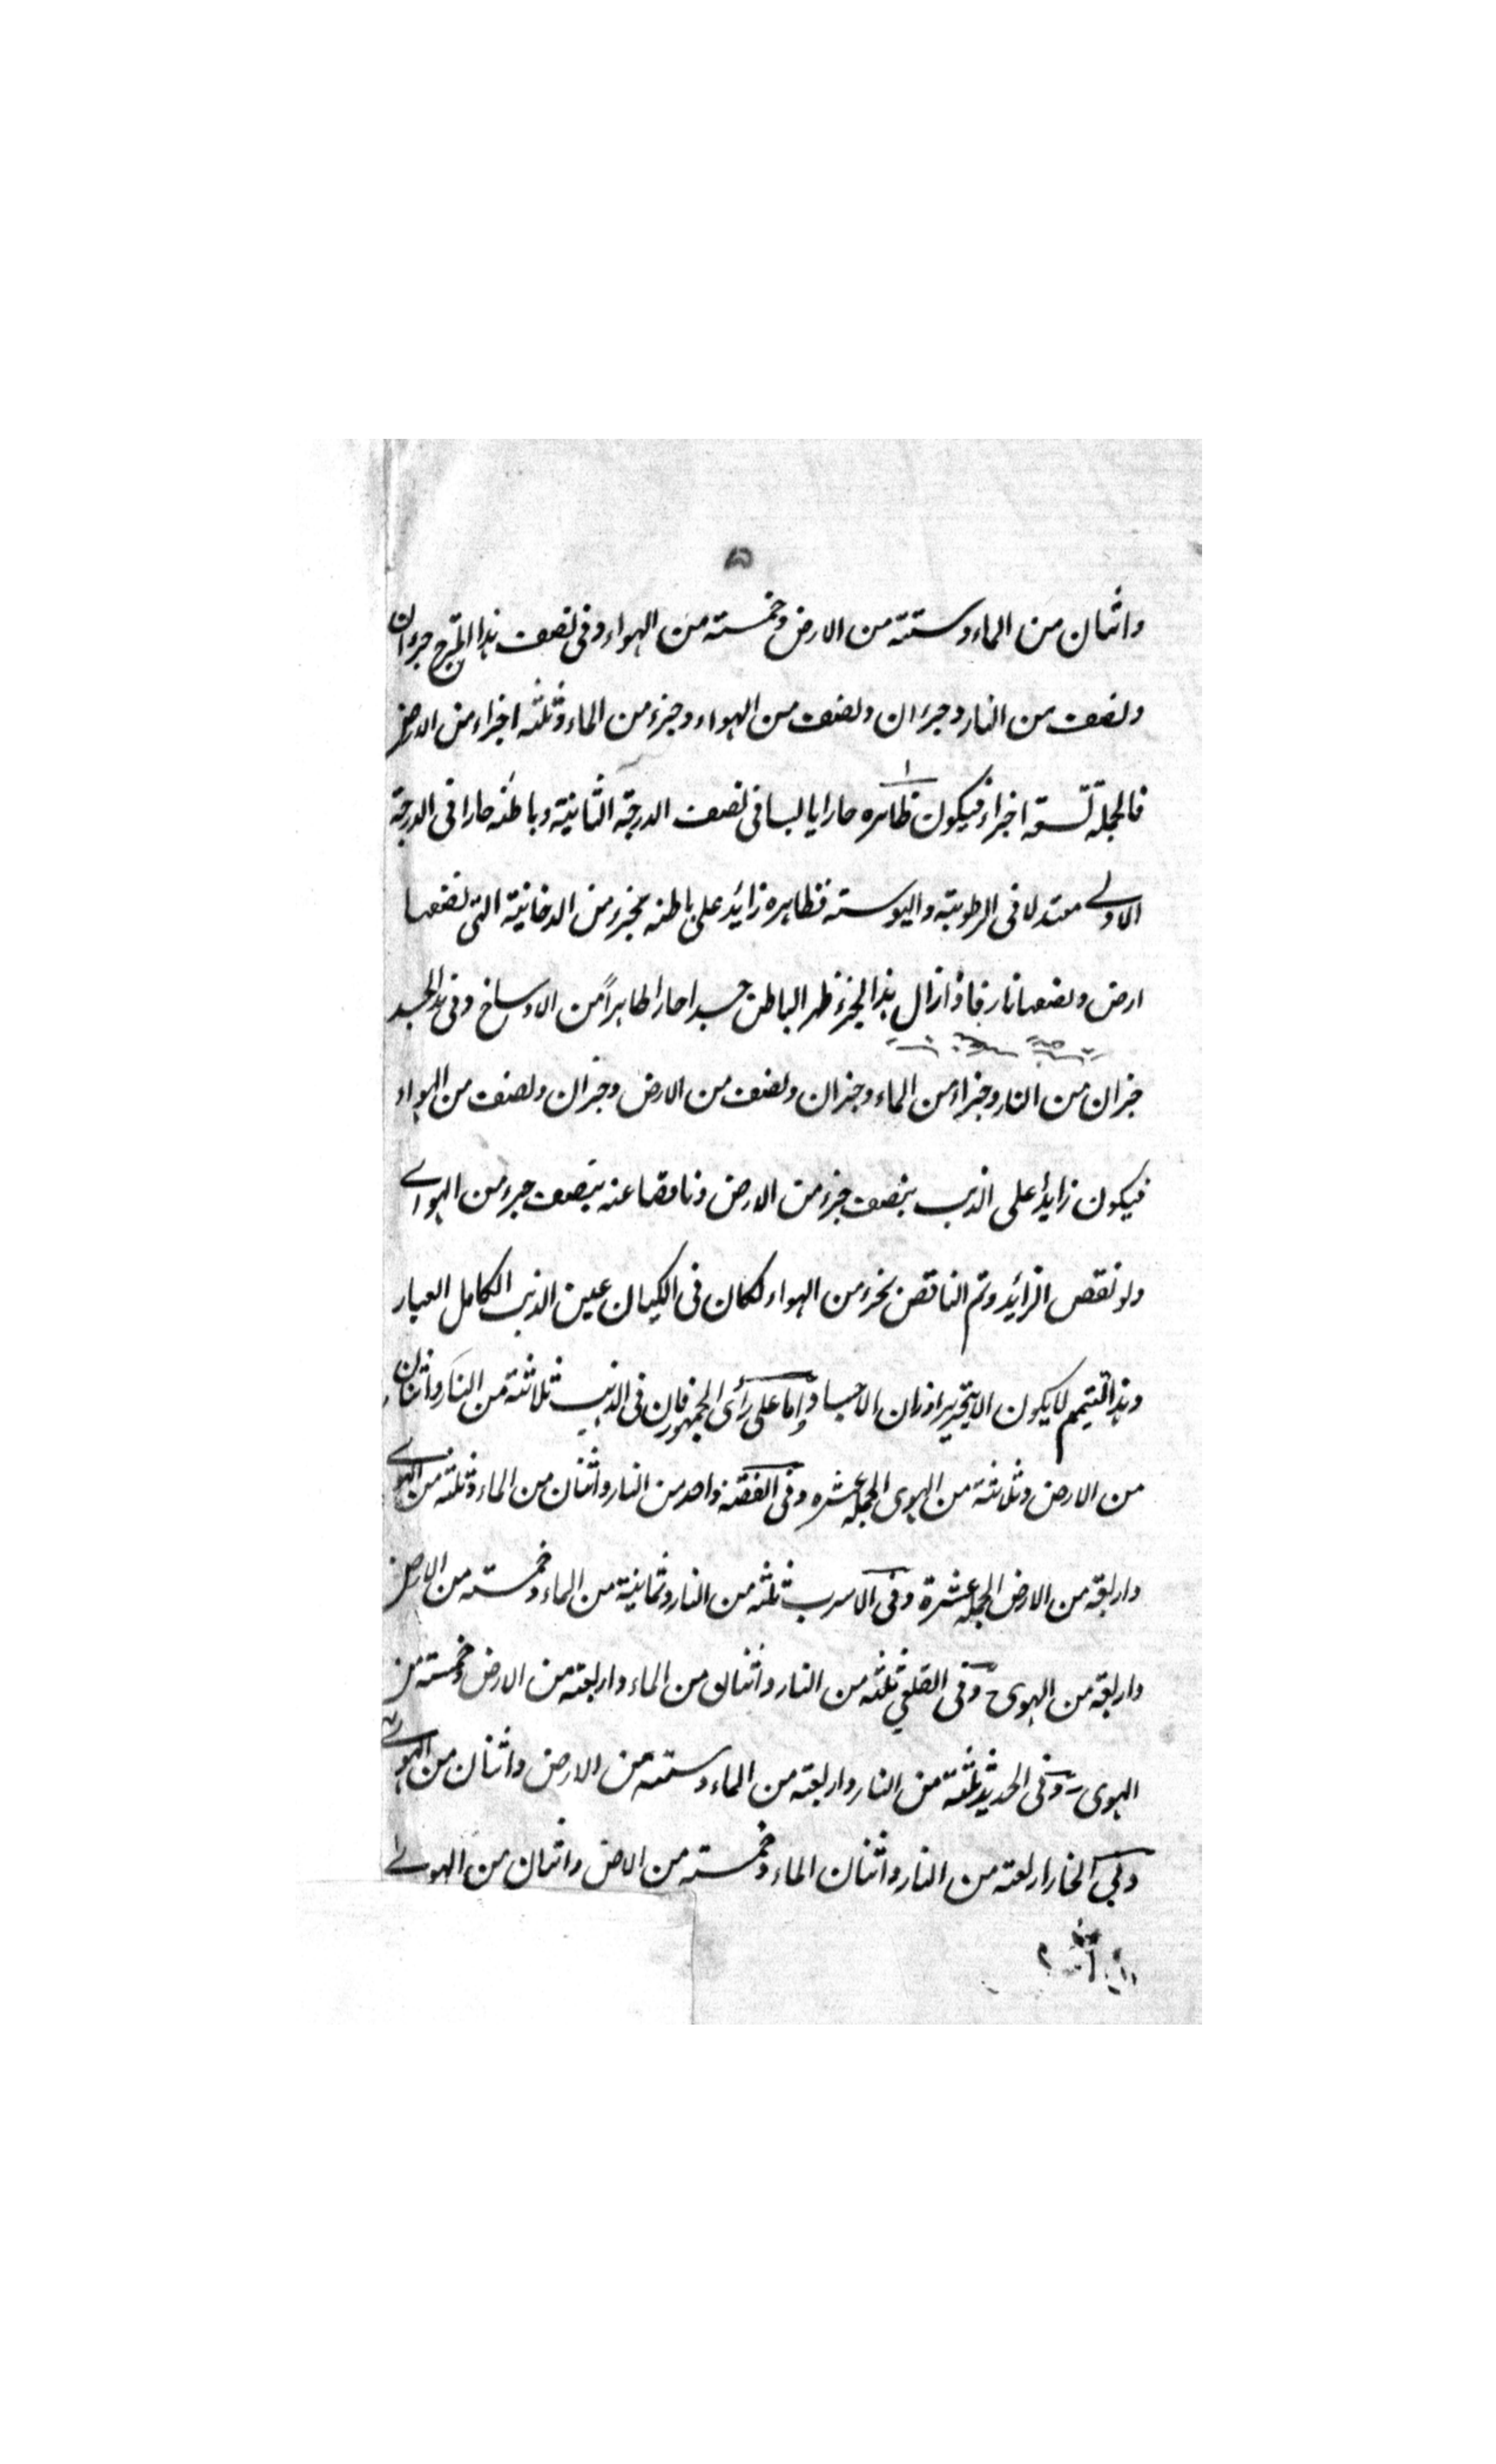 ۵
واثنان من الماء وستة من الارض وخمسته من الهواء وفى نصف هذا المزج جزءان
ونصف من النار وجزءان ونصف من الهواء وجزء من الماء وثلثه اجزاء من الارض
فالجملة تسعة اجزاء فيكون ظاهره حارا يابسا فى نصف الدرجة الثانية وباطنه حارا فى الدرجة
الاولے معتدلا فى الرطوبته واليبوسته فظاهره زائد على باطنه بجزء من الدخانية التى نصفها
ارض ونصفها نار فاذا زال هذا الجزء ظهر الباطن جسدا حارا طاهراً من الاوساخ وفى هذا الجسد
جزان من النار وجزاء من الماء وجزان ونصف من الارض وجزان ونصف من الهواء
فيكون زايدا على الذهب بنصف جزء من الارض وناقصا عنه بنصف جزء من الهواے
ولو نقص الزائد وتم الناقص بجزء من الهواء لكان فى الكيان عين الذهب الكامل العيار
وهذا التيمم لا يكون الا بتحرير اوزان الاجساد واما على رأى الجمهور فان فى الذهب ثلاثة من النار واثنان
من الارض وثلاثة من الهوى الجمله عشره وفى الفضه واحد من النار واثنان من الماء وثلثة من الهوے
واربعة من الارض الجمله عشرة وفى الاسرب ثلثه من النار وثمانية من الماء وخمسته من الارض
واربعة من الهوى وفى القلعي ثلثه من النار واثنان من الماء واربعته من الارض وخمسته من
الهوى وفى الحديد ثلثة من النار واربعته من الماء وستته من الارض واثنان من الهوے
وفي النحاس اربعته من النار واثنان الماء وخمسته من الارض واثنان من الهوے